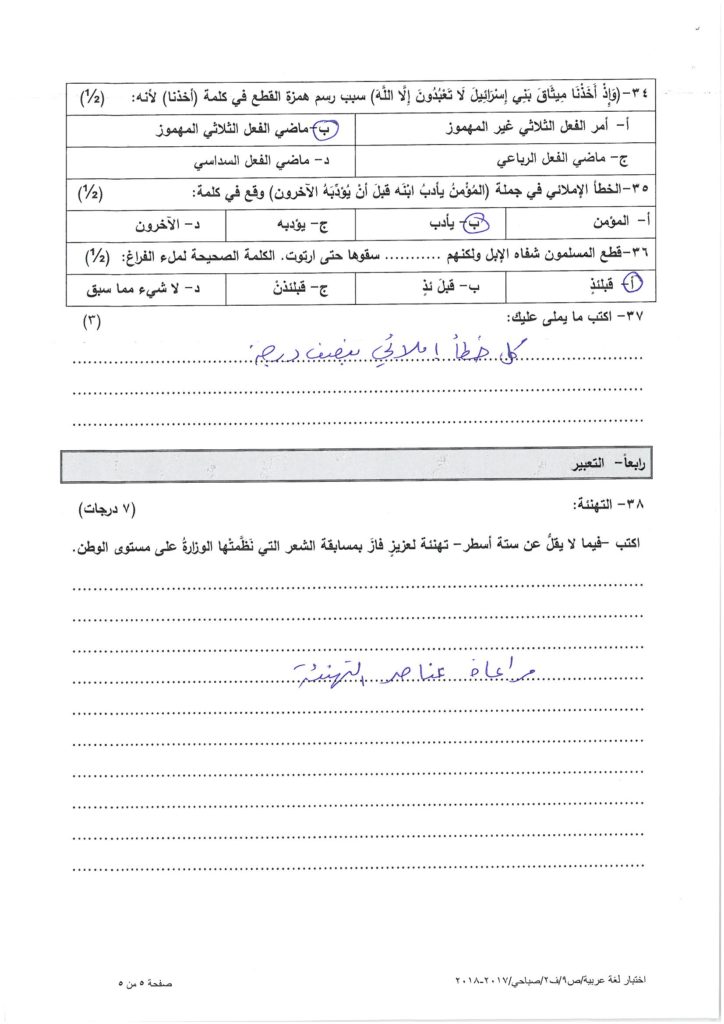 ٣٤-(وَإِذْ أَخَذْنَا مِيثَاقَ بَنِي إِسْرَائِيلَ لَا تَعْبُدُونَ إِلَّا اللَّهَ) سبب رسم همزة القطع في كلمة (أخذنا) لأنه: (½)
أ- أمر الفعل الثلاثي غير المهموز ب- ماضي الفعل الثلاثي المهموز
ج- ماضي الفعل الرباعي د- ماضي الفعل السداسي
٣٥-الخطأ الإملائي في جملة (المُؤْمنُ يأدبُ ابْنَه قبلَ أنْ يُؤدِّبَهُ الآخرون) وقع في كلمة: (½)
أ- المؤمن ب- يأدب ج- يؤدبه د- الآخرون
٣٦-قطع المسلمون شفاه الإبل ولكنهم ........... سقوها حتى ارتوت. الكلمة الصحيحة لملء الفراغ: (½)
أ- قبلئذٍ ب- قبلَ ئذٍ ج- قبلئذنْ د- لا شيء مما سبق
٣٧- اكتب ما يملى عليك: (٣)
كل خطأ إملائي بنصف درجة
رابعاً- التعبير
٣٨- التهنئة: (٧ درجات)
اكتب -فيما لا يقلُّ عن ستة أسطر- تهنئة لعزيزٍ فازَ بمسابقة الشعر التي نَظَّمتْها الوزارةُ على مستوى الوطن.
مراعاة عناصر التهنئة
اختبار لغة عربية/ص٩/ف٢/صباحي/٢٠١٧-٢٠١٨ صفحة ٥ من ٥